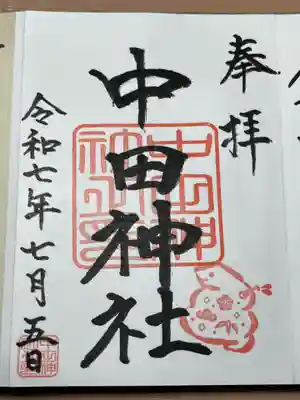 奉拝
中田神社
令和七年七月五日